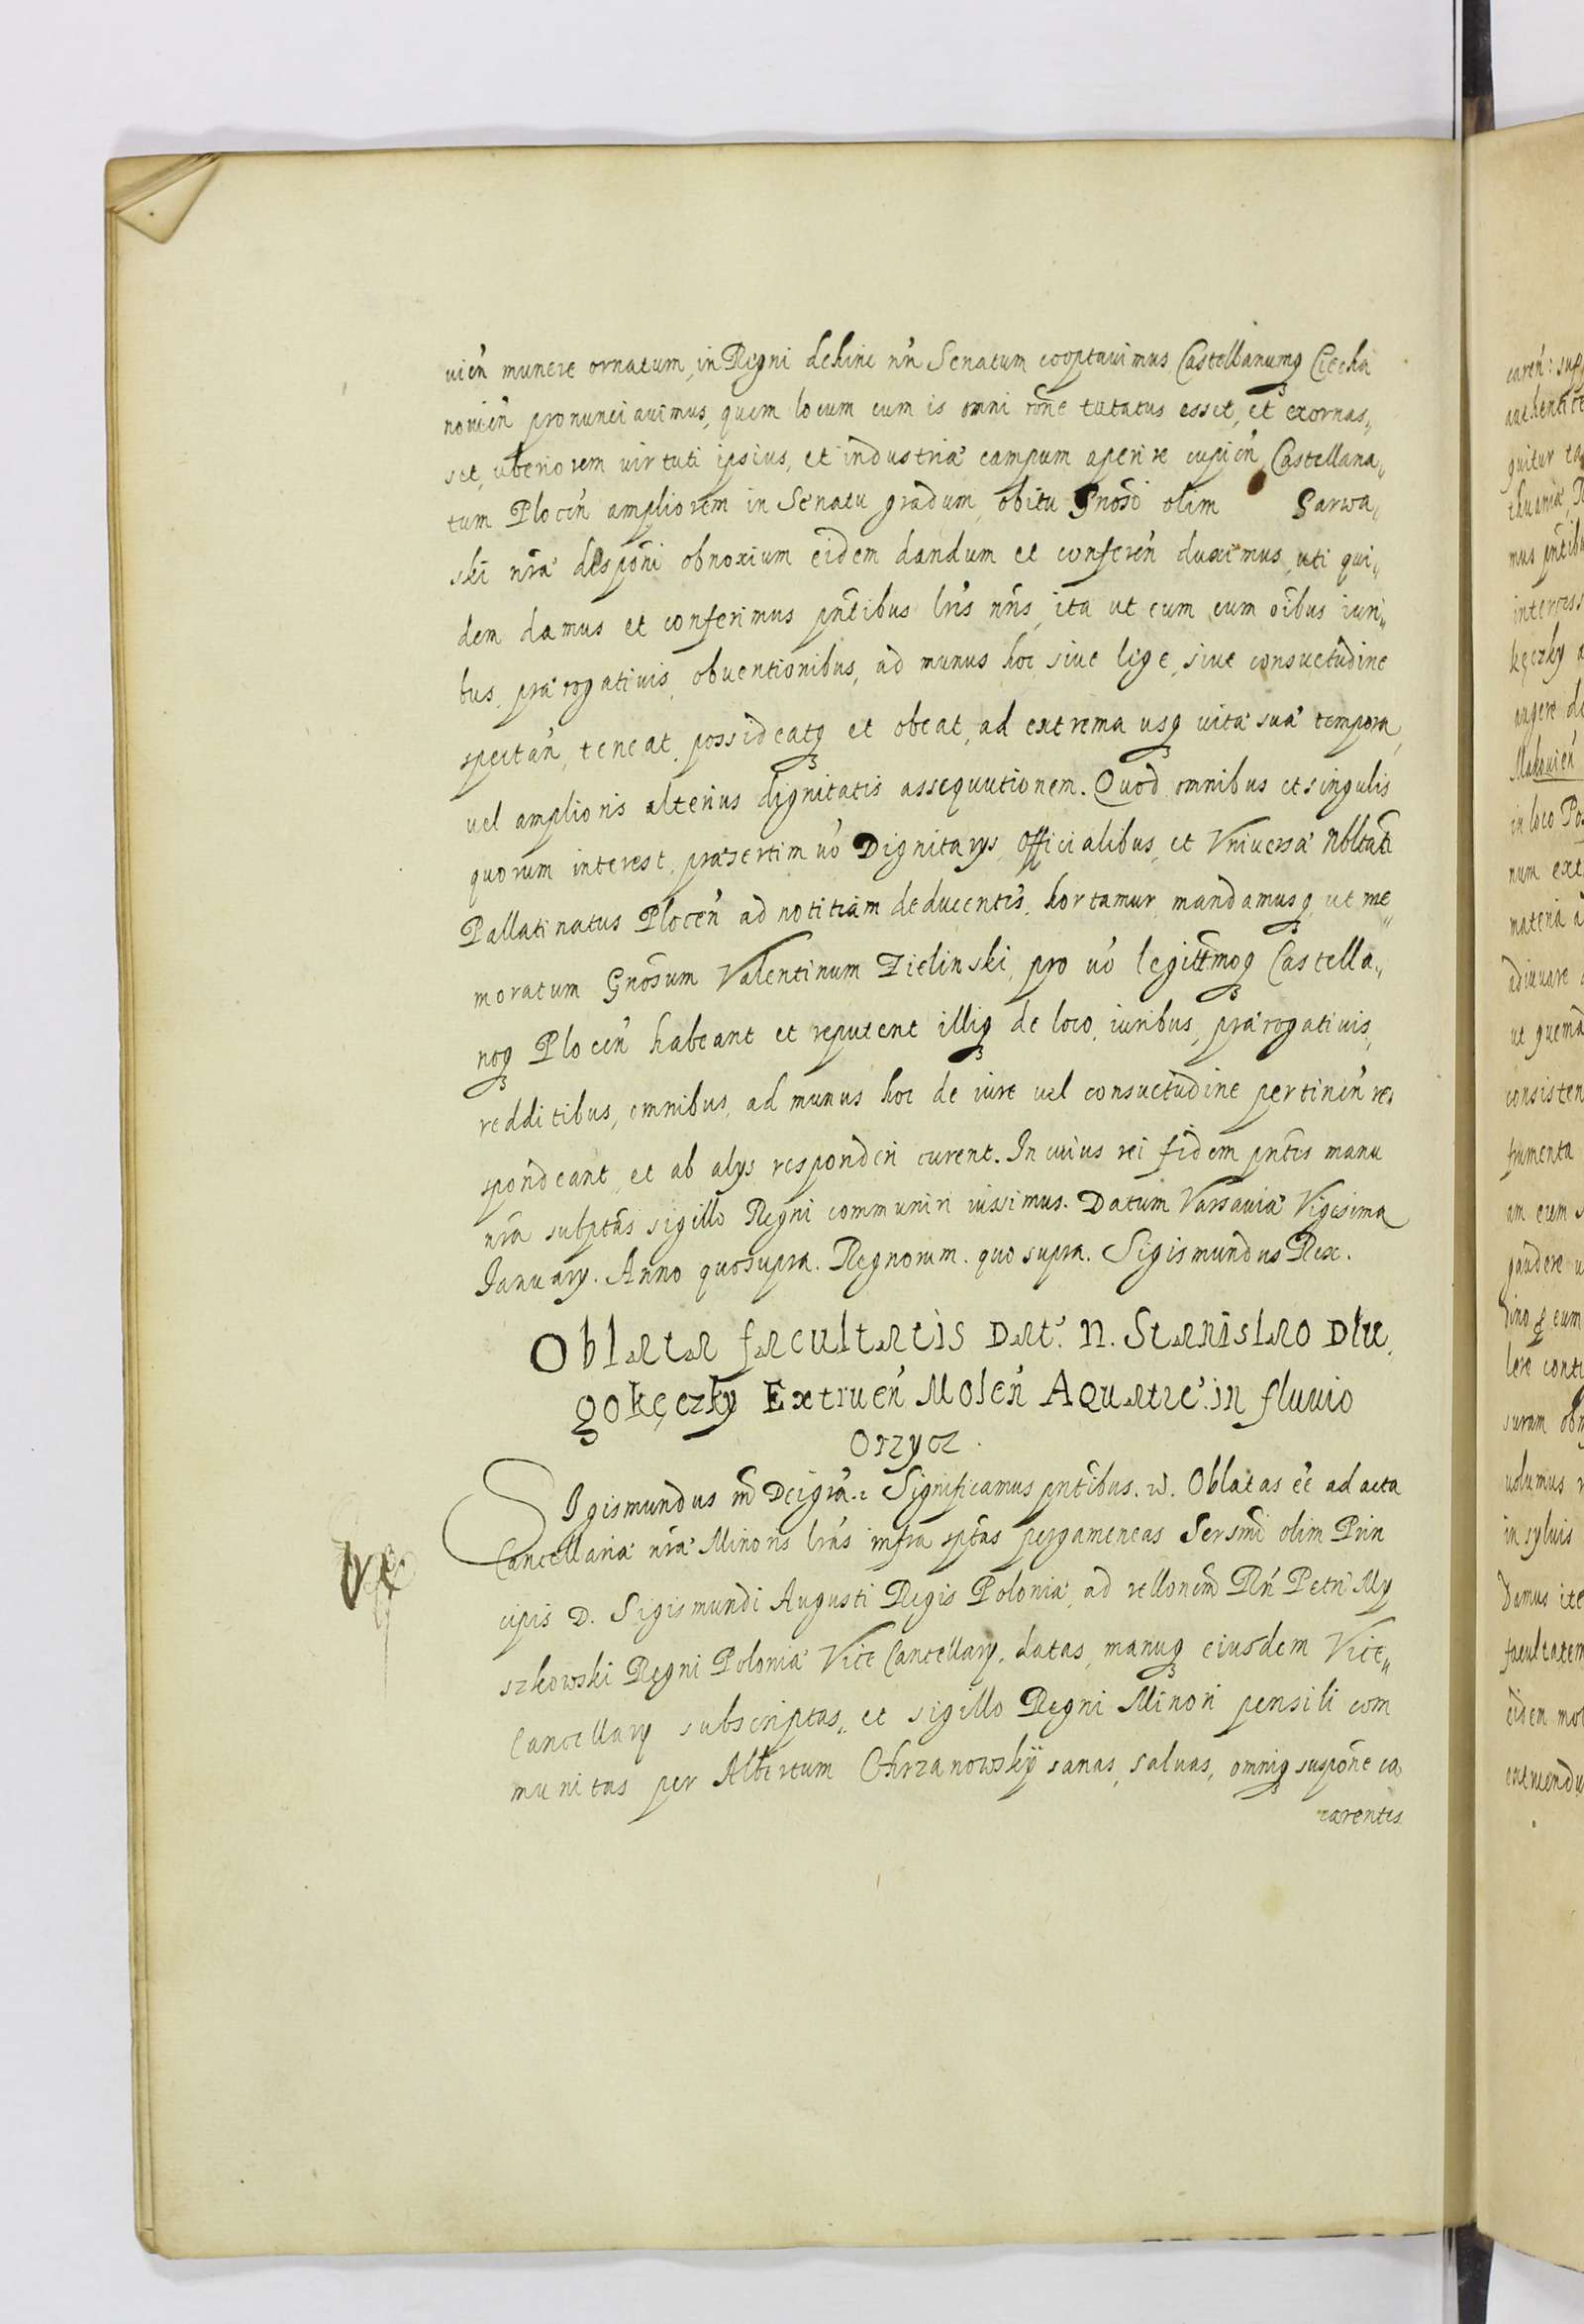 uien̄ munere ornatum, in Regni dehinc nr̄i Senatum cooptauimus Castellanumq Ciecha
nouien̄ pronunciauimus, quem locum cum is omni rōne tutatus esset, et exornas„
set, uberiorem uirtuti ipsius, et industriæ campum aperire cupien̄ Castellana„
tum Plocen̄ ampliorem in Senatu gradum, obitu Gnōsi olim Sarwa„
ski nr̄æ dispōni obnoxium eidem dandum et conferen̄ duximus, uti qui„
dem damus et conferimus pn̄tibus lr̄is nr̄is, ita ut eum cum oībus iuri„
bus, præ rogatiuis, obuentionibus, ad munus hoc siue lege, siue consuetudine
spectan̄, teneat possideatq et obeat, ad extrema usq uitæ suæ tempora,
uel amplioris alterius dignitatis assequutionem. Quod omnibus et singulis
quorum interest, præsertim uō Dignitarys, Officialibus, et Vniuersæ Nbltati
Pallatinatus Plocen̄ ad notitiam deducentes, hortamur mandamusq ut me„
moratum Gnōsum Valentinum Zielinski, pro uō legittimoq Castella„
noq Plocen̄ habeant et reputent illiq de loco, iuribus, præ rogatiuis,
redditibus, omnibus, ad munus hoc de iure uel consuetudine pertinen̄ re„
spondeant, et ab alys responderi curent. In cuius rei fidem pn̄tes manu
nr̄a subsptas sigillo Regni communiri iussimus. Datum Varsauiæ Vigesima
January. Anno quo supra. Regnorum. quo supra. Sigismundus Rex.
Oblata facultatis Datæ N. Stanislao Dlu„
gokęczky Extruen̄ Molen̄ Aquatic̄ in fluuio
Orzycz.
Sigismundus III Dei grā. Significamus pn̄tibus. Oblatas ee ad acta
Cancellariæ nr̄æ Minoris lr̄as infra sptas pergameneas Sersmi olim Prin
cipis D. Sigismundi Augusti Regis Poloniæ, ad rellonem Rn̄ Petri My
szkowski Regni Poloniæ Vice Cancellary. datas, manuq eiusdem Vice„
Cancellary subscriptas, et sigillo Regni Minori pensili com
munitas per Albertum Chrzanowsky sanas, saluas, omniq suspōne ca„
carentes